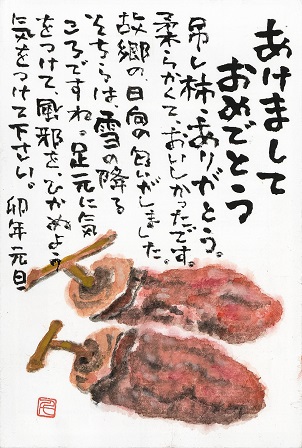 あけまして
おめでとう
吊し柿、ありがとう。
柔らかくて、おいしかったです。
故郷の、日向の匂いがしました。
そちらは、雪の降る
ころですね。足元に気
をつけて、風邪を、ひかぬよう
気をつけて下さい。
卯年元旦